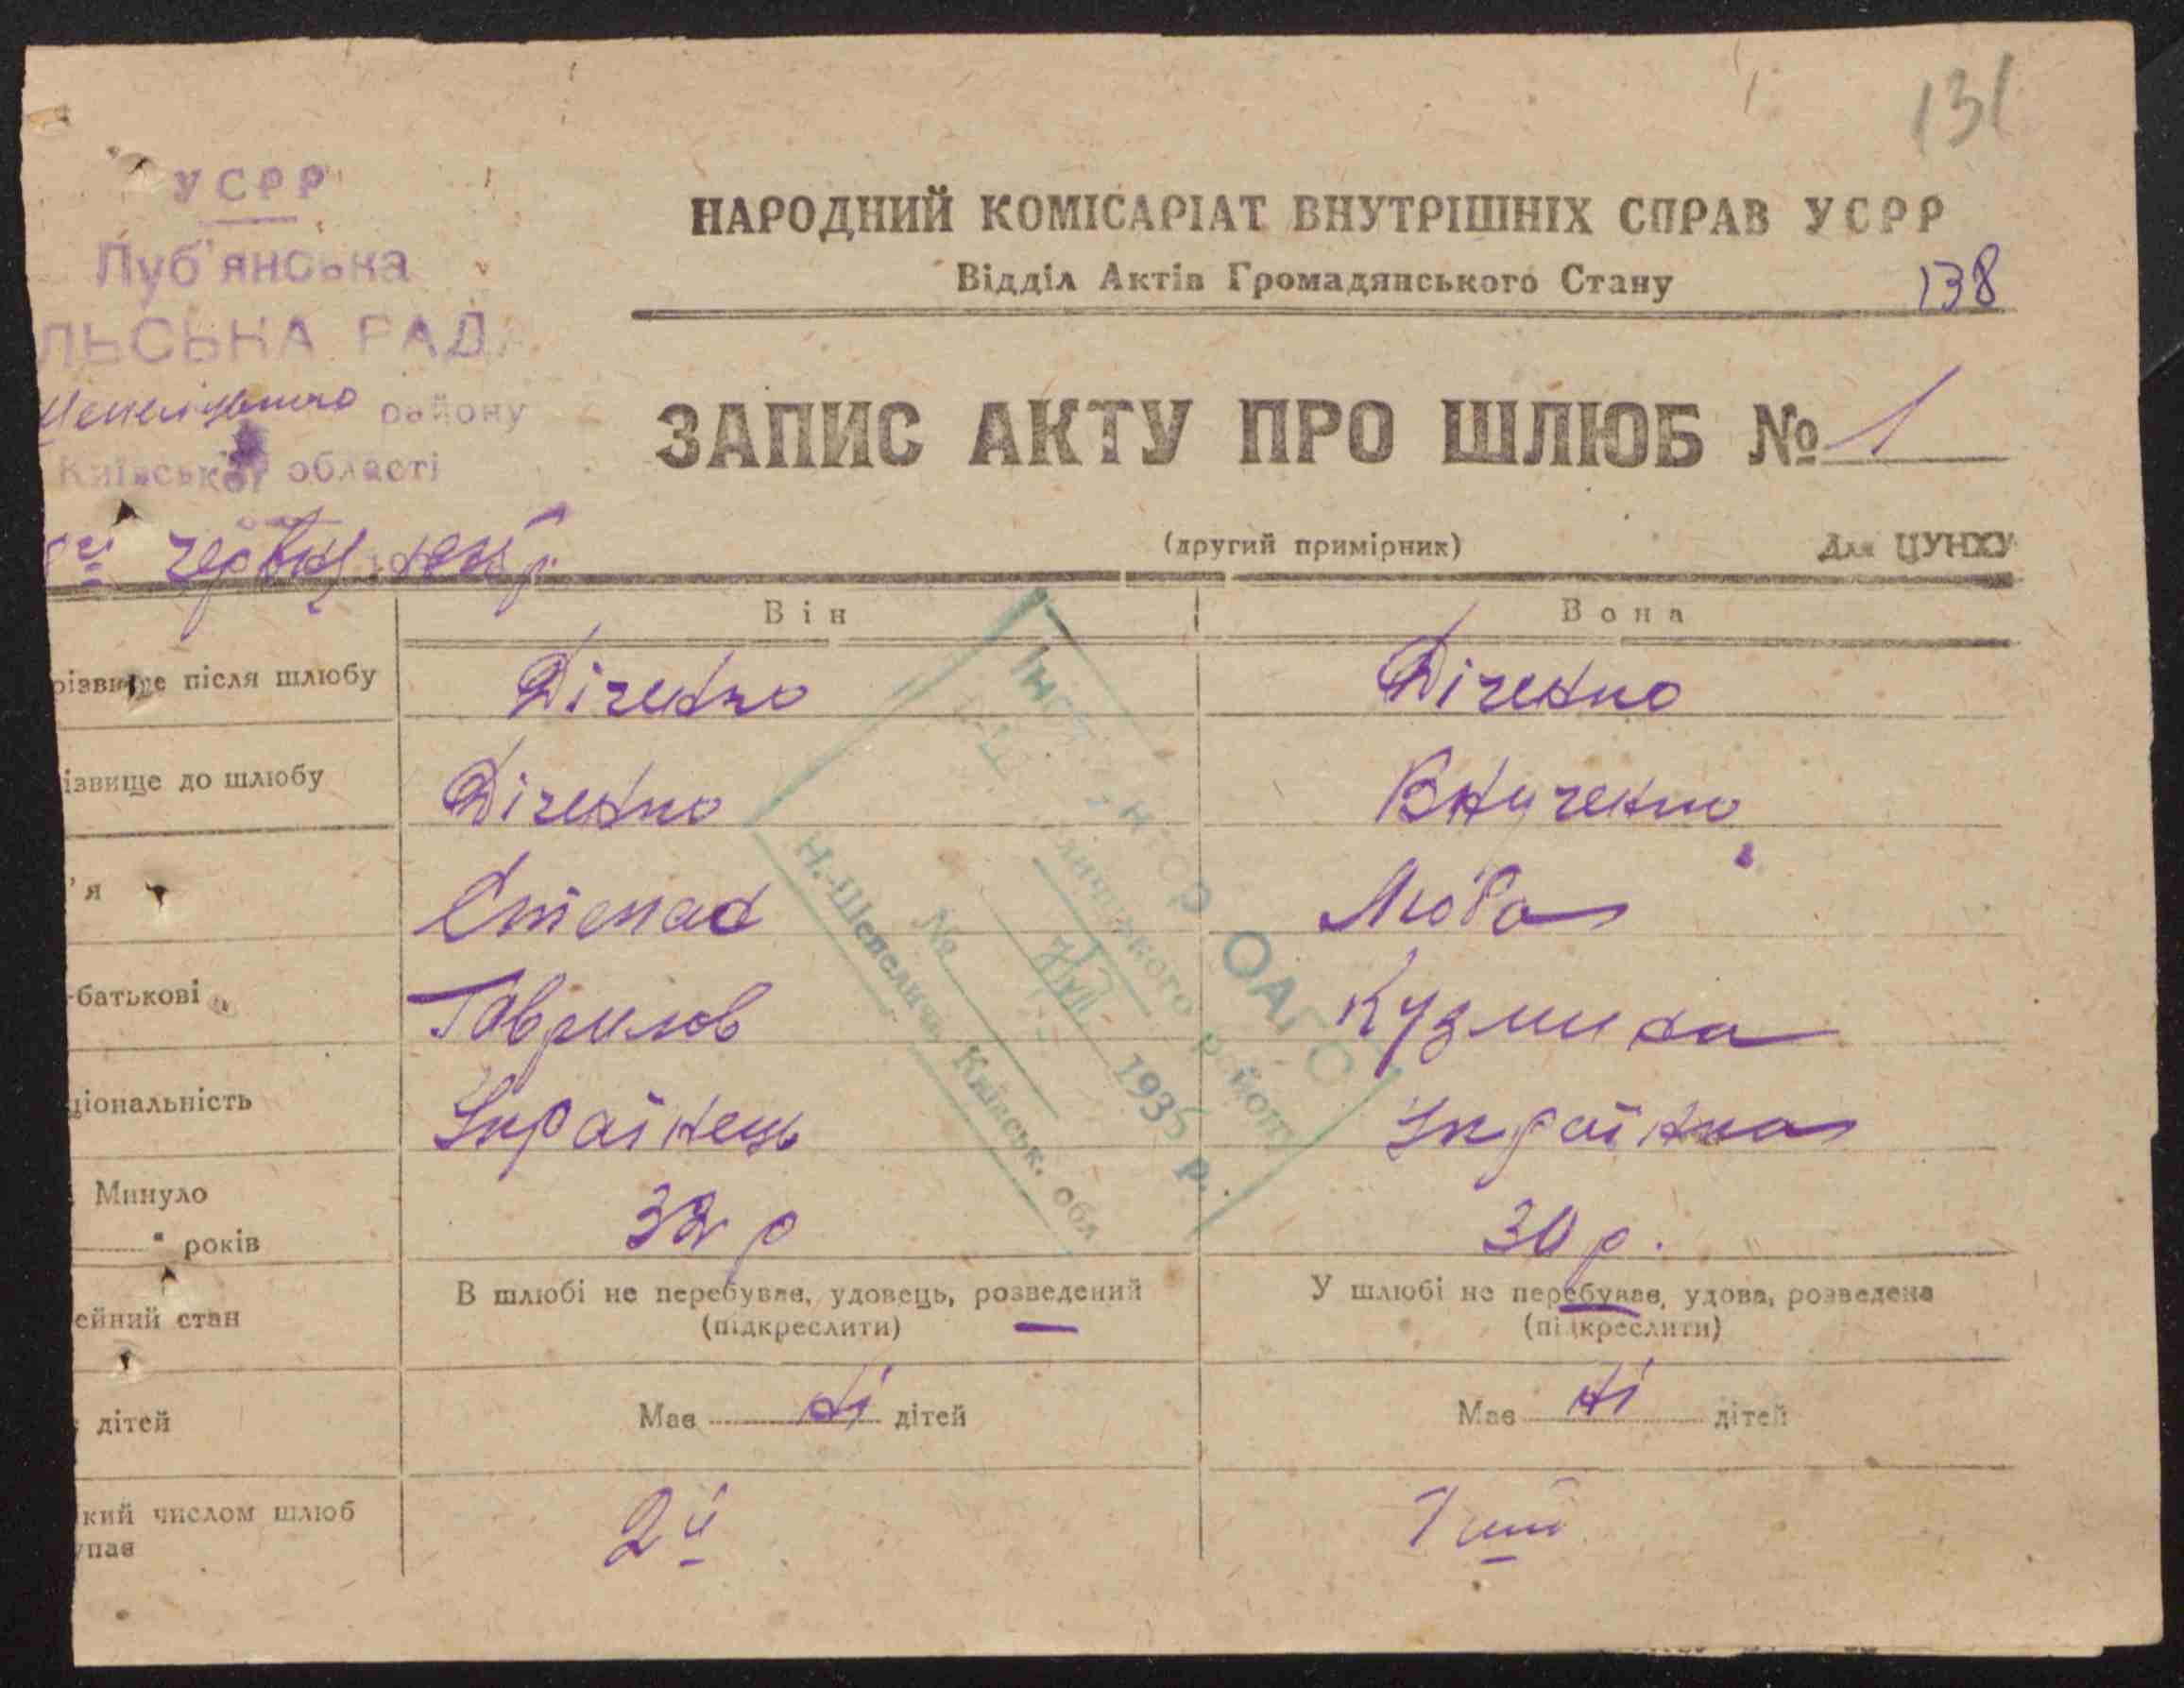 131
УСРР
Луб'янська
ЛЬСЬКА РАДА
району
Київської області
НАРОДНИЙ КОМІСАРІАТ ВНУТРІШНІХ СПРАВ УСРР
Відділ Актів Громадянського Стану
138
ЗАПИС АКТУ ПРО ШЛЮБ № 1
(другий примірник)
Для ЦУНХУ
червня
Він
Вона
різвище після шлюбу
Діченко
Діченко
ізвище до шлюбу
Діченко
Внученко
'я
Степан
Люба
-батькові
Гаврилов
Кузмина
ціональність
Українець
Українка
Минуло
років
32 р
30 р.
ейний стан
В шлюбі не перебував, удовець, розведений
(підкреслити)
У шлюбі не перебував, удова, розведена
(підкреслити)
дітей
Має ні дітей
Має ні дітей
кий числом шлюб
упає
2й
1ший
ОАГС
району
№
1935 р.
Н.-Шепеличі, Київськ. обл